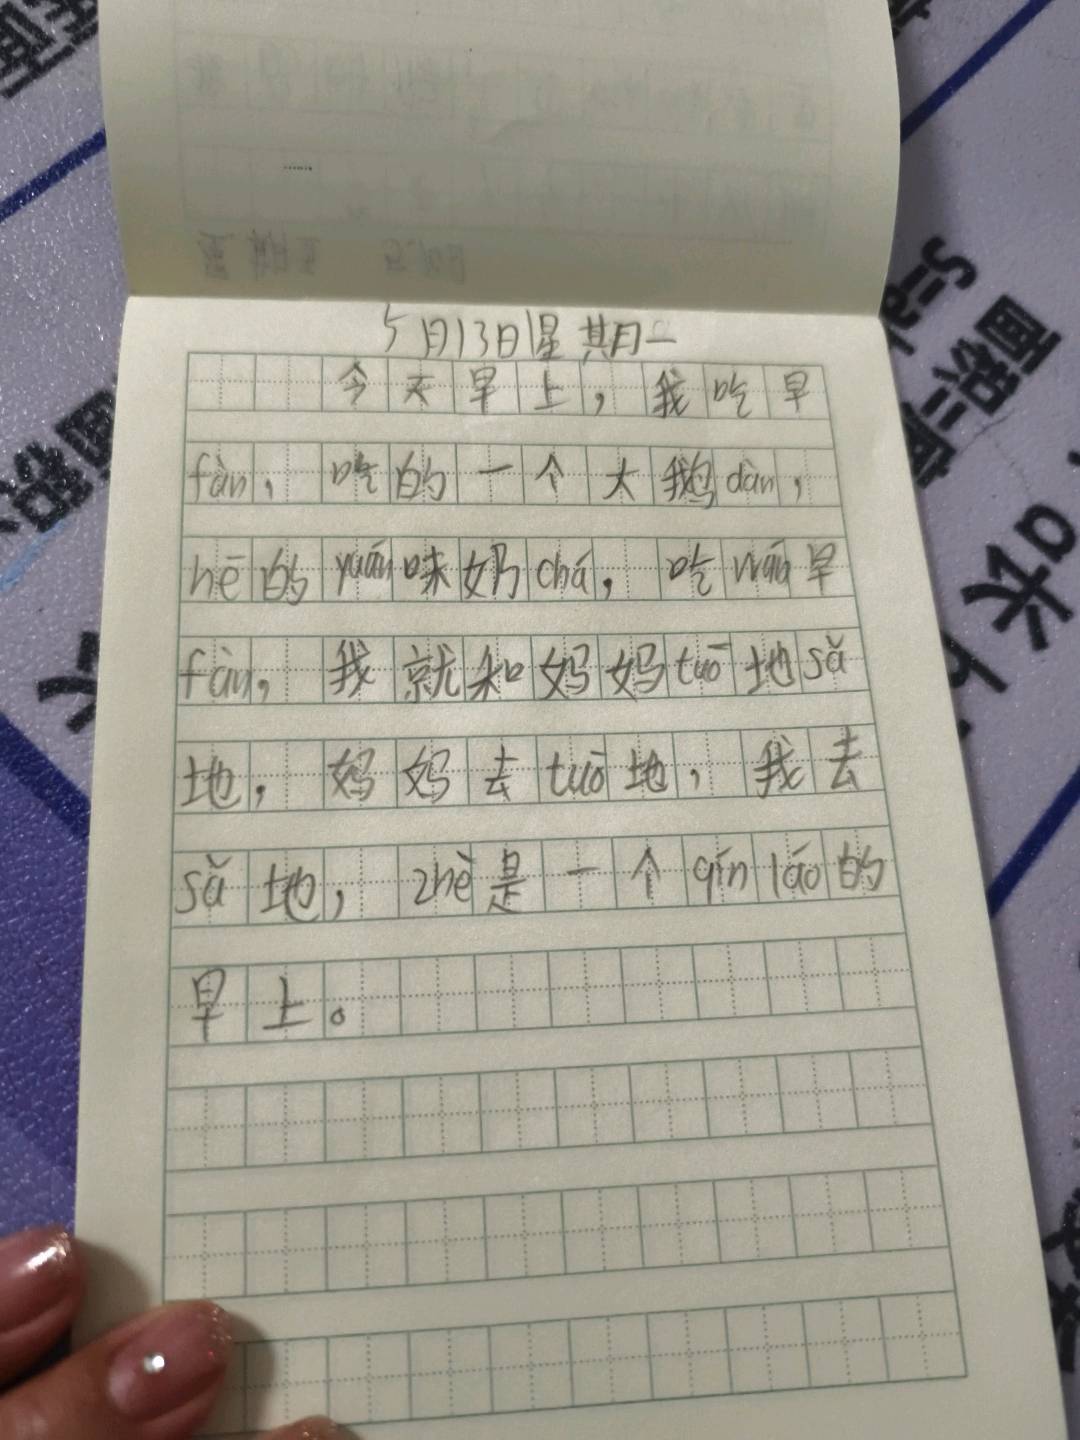 5月13日星期一
今天早上，我吃早
fàn，吃的一个大鹅dàn，
hē的yuán味奶chá，吃wán早
fàn，我就和妈妈tuō地sǎ
地，妈妈去tuō地，我去
sǎ地，zhè是一个qín láo的
早上。